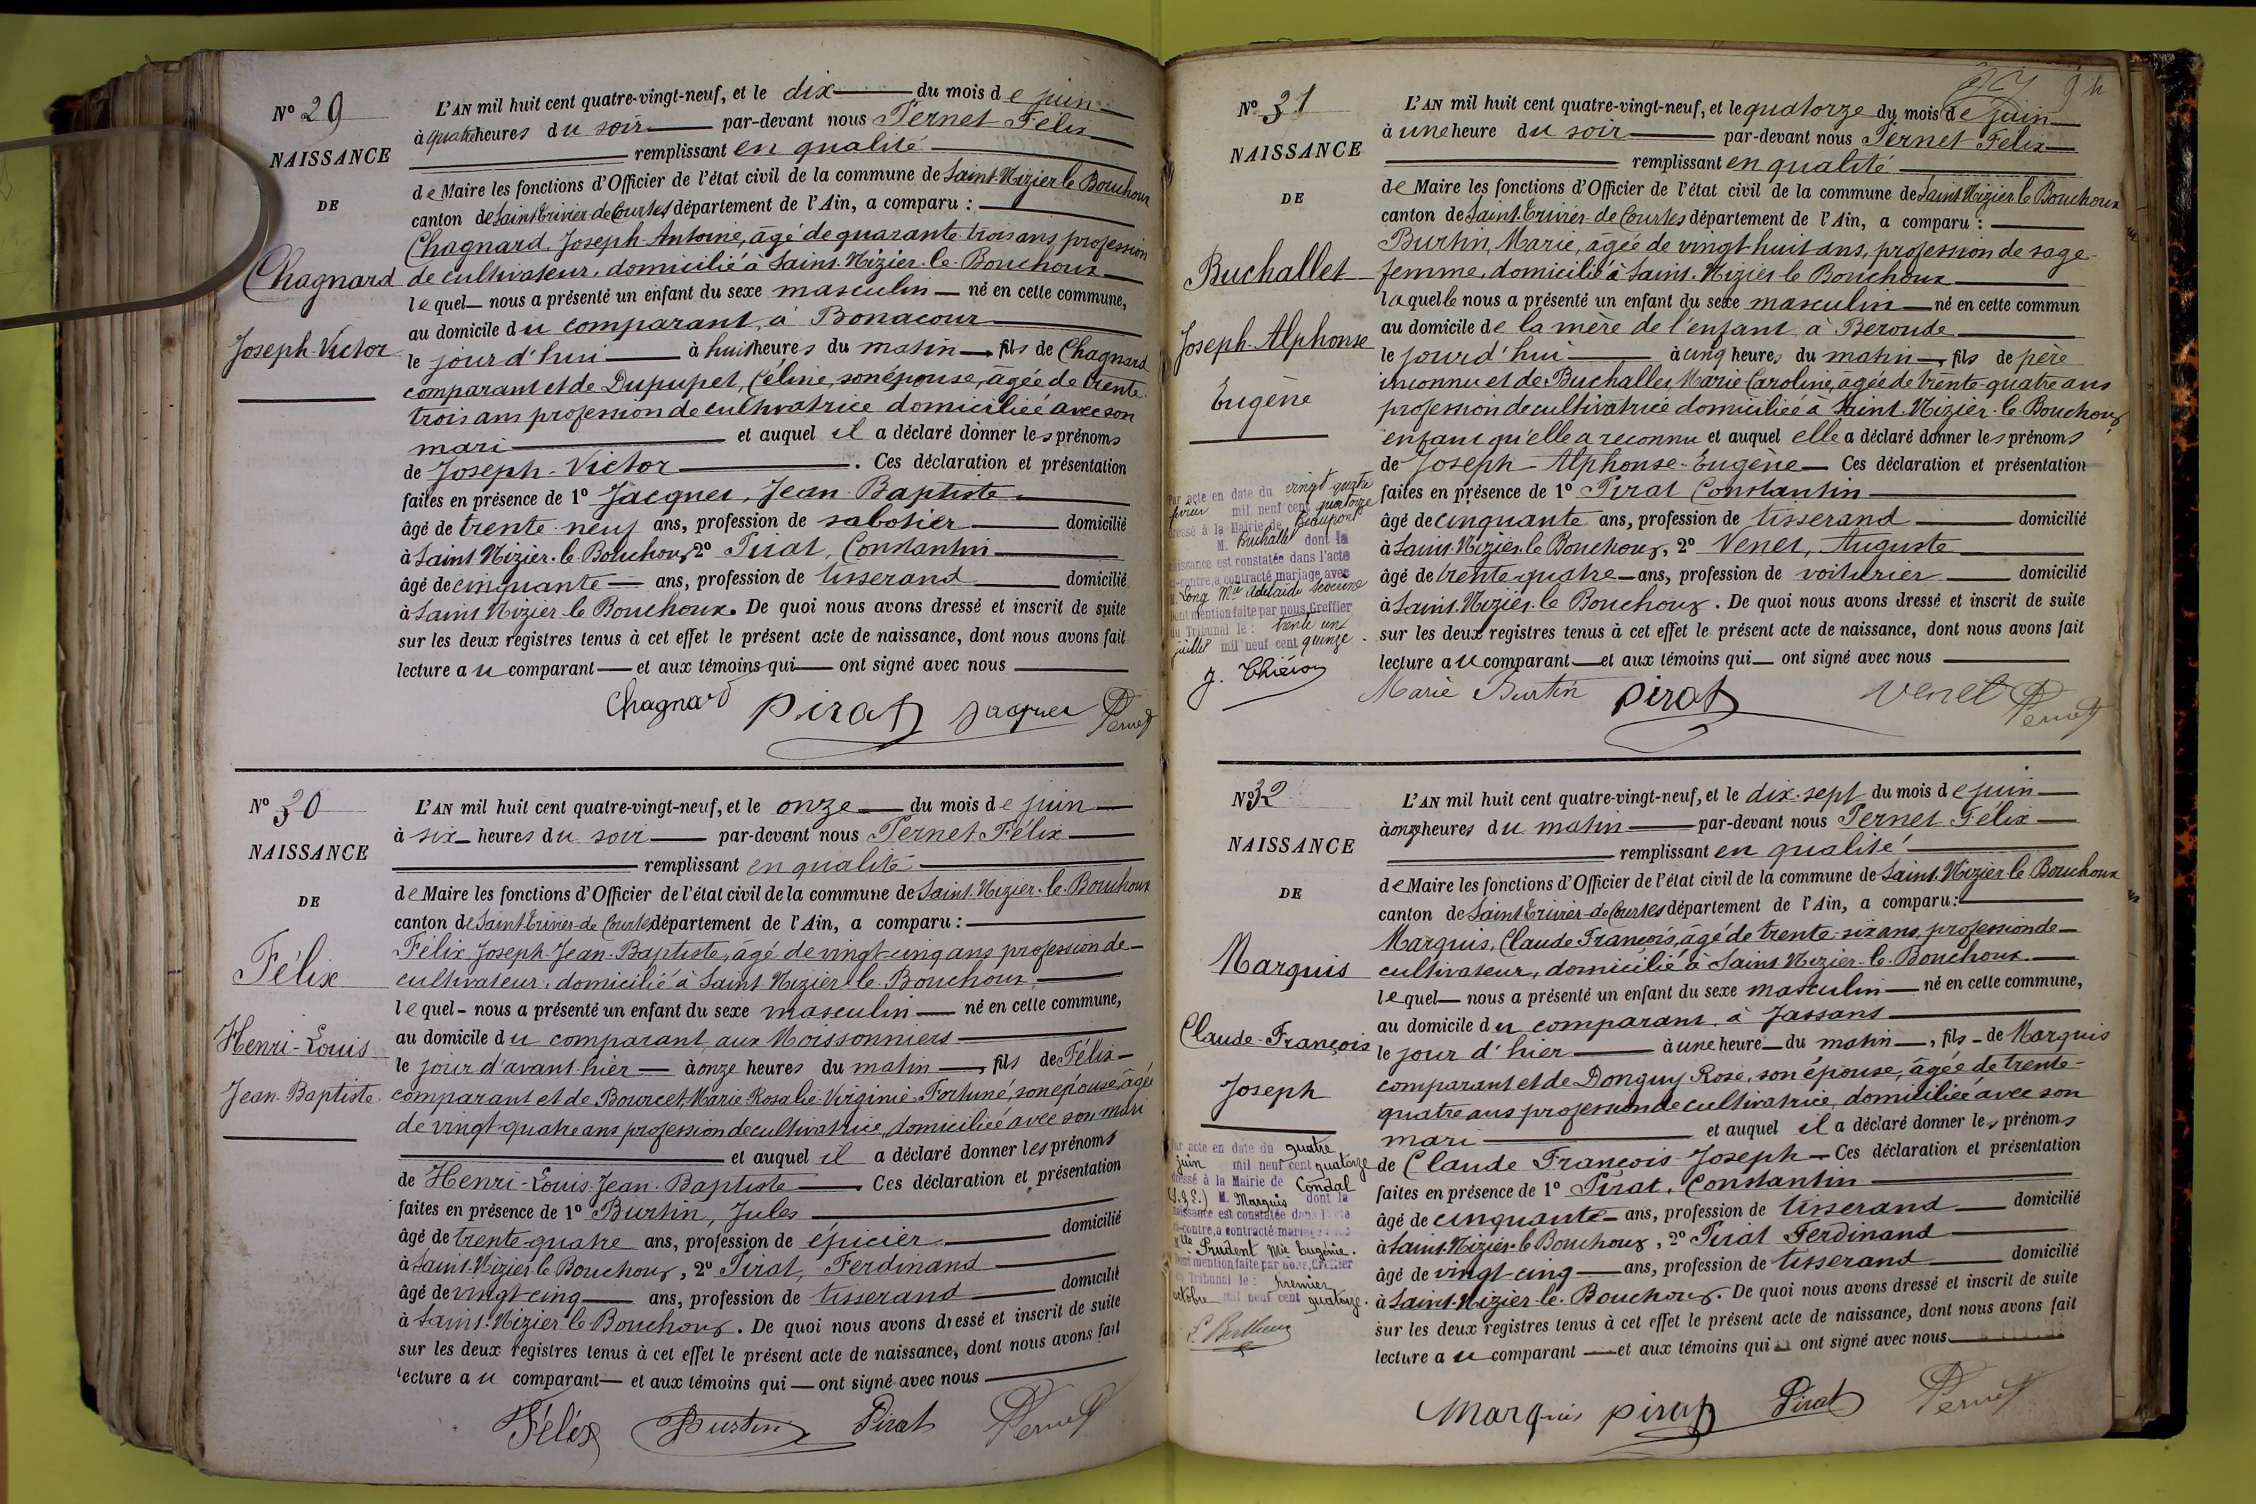 Nº 29
NAISSANCE
DE
Chagnard
Joseph-Victor
L'AN mil huit cent quatre-vingt-neuf, et le dix du mois de juin
à quatre heures du soir par-devant nous Pernet Félix
remplissant en qualité
de Maire les fonctions d'Officier de l'état civil de la commune de Saint-Nizier-le-Bouchoux
canton de Saint-Trivier-de-Courtes département de l'Ain, a comparu :
Chagnard, Joseph-Antoine, âgé de quarante-trois ans, profession
de cultivateur, domicilié à Saint-Nizier-le-Bouchoux
lequel nous a présenté un enfant du sexe masculin né en cette commune,
au domicile du comparant, à Bonacour
le jour d'hui à huit heures du matin, fils de Chagnard
comparant et de Dupupet, Céline, son épouse, âgée de trente-
trois ans profession de cultivatrice domiciliée avec son
mari et auquel il a déclaré donner les prénoms
de Joseph-Victor. Ces déclaration et présentation
faites en présence de 1º Jacquet, Jean-Baptiste
âgé de trente-neuf ans, profession de sabotier domicilié
à Saint-Nizier-le-Bouchoux, 2º Pirat, Constantin
âgé de cinquante ans, profession de tisserand domicilié
à Saint-Nizier-le-Bouchoux. De quoi nous avons dressé et inscrit de suite
sur les deux registres tenus à cet effet le présent acte de naissance, dont nous avons fait
lecture au comparant et aux témoins qui ont signé avec nous
Chagnard Pirat Jacquet Pernet
Nº 30
NAISSANCE
DE
Félix
Henri-Louis
Jean-Baptiste
L'AN mil huit cent quatre-vingt-neuf, et le onze du mois de juin
à six heures du soir par-devant nous Pernet Félix
remplissant en qualité
de Maire les fonctions d'Officier de l'état civil de la commune de Saint-Nizier-le-Bouchoux
canton de Saint-Trivier-de-Courtes département de l'Ain, a comparu :
Félix Joseph-Jean-Baptiste, âgé de vingt-cinq ans profession de
cultivateur, domicilié à Saint-Nizier-le-Bouchoux
lequel nous a présenté un enfant du sexe masculin né en cette commune,
au domicile du comparant aux Moissonniers
le jour d'avant-hier à onze heures du matin, fils de Félix
comparant et de Bourcet, Marie-Rosalie-Virginie-Fortuné, son épouse, âgée
de vingt-quatre ans profession de cultivatrice, domiciliée avec son mari
et auquel il a déclaré donner les prénoms
de Henri-Louis-Jean-Baptiste. Ces déclaration et présentation
faites en présence de 1º Burtin, Jules
âgé de trente-quatre ans, profession de épicier domicilié
à Saint-Nizier-le-Bouchoux, 2º Pirat, Ferdinand
âgé de vingt-cinq ans, profession de tisserand domicilié
à Saint-Nizier-le-Bouchoux. De quoi nous avons dressé et inscrit de suite
sur les deux registres tenus à cet effet le présent acte de naissance, dont nous avons fait
lecture au comparant et aux témoins qui ont signé avec nous
Félix Burtin Pirat Pernet
Nº 31
NAISSANCE
DE
Buchallet
Joseph-Alphonse
Eugène
L'AN mil huit cent quatre-vingt-neuf, et le quatorze du mois de juin
à une heure du soir par-devant nous Pernet Félix
remplissant en qualité
de Maire les fonctions d'Officier de l'état civil de la commune de Saint-Nizier-le-Bouchoux
canton de Saint-Trivier-de-Courtes département de l'Ain, a comparu :
Burtin, Marie, âgée de vingt-huit ans, profession de sage-
femme, domicilié à Saint-Nizier-le-Bouchoux
laquelle nous a présenté un enfant du sexe masculin né en cette commun
au domicile de la mère de l'enfant à Beroude
le jour d'hui à cinq heures du matin, fils de père
inconnu et de Buchallet Marie Caroline, âgée de trente-quatre ans
profession de cultivatrice domiciliée à Saint-Nizier-le-Bouchoux
enfant qu'elle a reconnu et auquel elle a déclaré donner les prénoms
de Joseph-Alphonse-Eugène Ces déclaration et présentation
faites en présence de 1º Pirat Constantin
âgé de cinquante ans, profession de tisserand domicilié
à Saint-Nizier-le-Bouchoux, 2º Venet, Auguste
âgé de trente-quatre ans, profession de voiturier domicilié
à Saint-Nizier-le-Bouchoux. De quoi nous avons dressé et inscrit de suite
sur les deux registres tenus à cet effet le présent acte de naissance, dont nous avons fait
lecture au comparant et aux témoins qui ont signé avec nous
Marie Burtin Pirat Venet Pernet
Par acte en date du vingt quatre
février mil neuf cent quatorze
dressé à la Mairie de Beaupont
M. Buchallet dont la
naissance est constatée dans l'acte
ci-contre, a contracté mariage avec
Long Mie Adélaïde
dont mention faite par nous, Greffier
du Tribunal le : trente un
juillet mil neuf cent quinze.
Nº 32
NAISSANCE
DE
Marquis
Claude-François
Joseph
L'AN mil huit cent quatre-vingt-neuf, et le dix-sept du mois de juin
à onze heures du matin par-devant nous Pernet Félix
remplissant en qualité
de Maire les fonctions d'Officier de l'état civil de la commune de Saint-Nizier-le-Bouchoux
canton de Saint-Trivier-de-Courtes département de l'Ain, a comparu :
Marquis, Claude François, âgé de trente-six ans, profession de
cultivateur, domicilié à Saint-Nizier-le-Bouchoux
lequel nous a présenté un enfant du sexe masculin né en cette commune,
au domicile du comparant, à Jassans
le jour d'hier à une heure du matin, fils de Marquis
comparant et de Donguy Rose, son épouse, âgée de trente-
quatre ans profession de cultivatrice, domiciliée avec son
mari et auquel il a déclaré donner les prénoms
de Claude François-Joseph Ces déclaration et présentation
faites en présence de 1º Pirat, Constantin
âgé de cinquante ans, profession de tisserand domicilié
à Saint-Nizier-le-Bouchoux, 2º Pirat Ferdinand
âgé de vingt-cinq ans, profession de tisserand domicilié
à Saint-Nizier-le-Bouchoux. De quoi nous avons dressé et inscrit de suite
sur les deux registres tenus à cet effet le présent acte de naissance, dont nous avons fait
lecture au comparant et aux témoins qui ont signé avec nous
Marquis Pirat Pirat Pernet
Par acte en date du quatre
juin mil neuf cent quatorze
dressé à la Mairie de Condal
(S.&L.) M. Marquis dont la
naissance est constatée dans l'acte
ci-contre, a contracté mariage avec
Melle Prudent Mie Eugénie.
Dont mention faite par nous, Greffier
du Tribunal le : premier
octobre mil neuf cent quatorze.